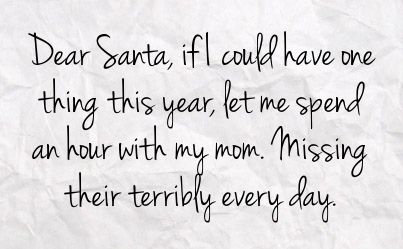 Dear Santa, if I could have one
thing this year, let me spend
an hour with my mom. Missing
their terribly every day.